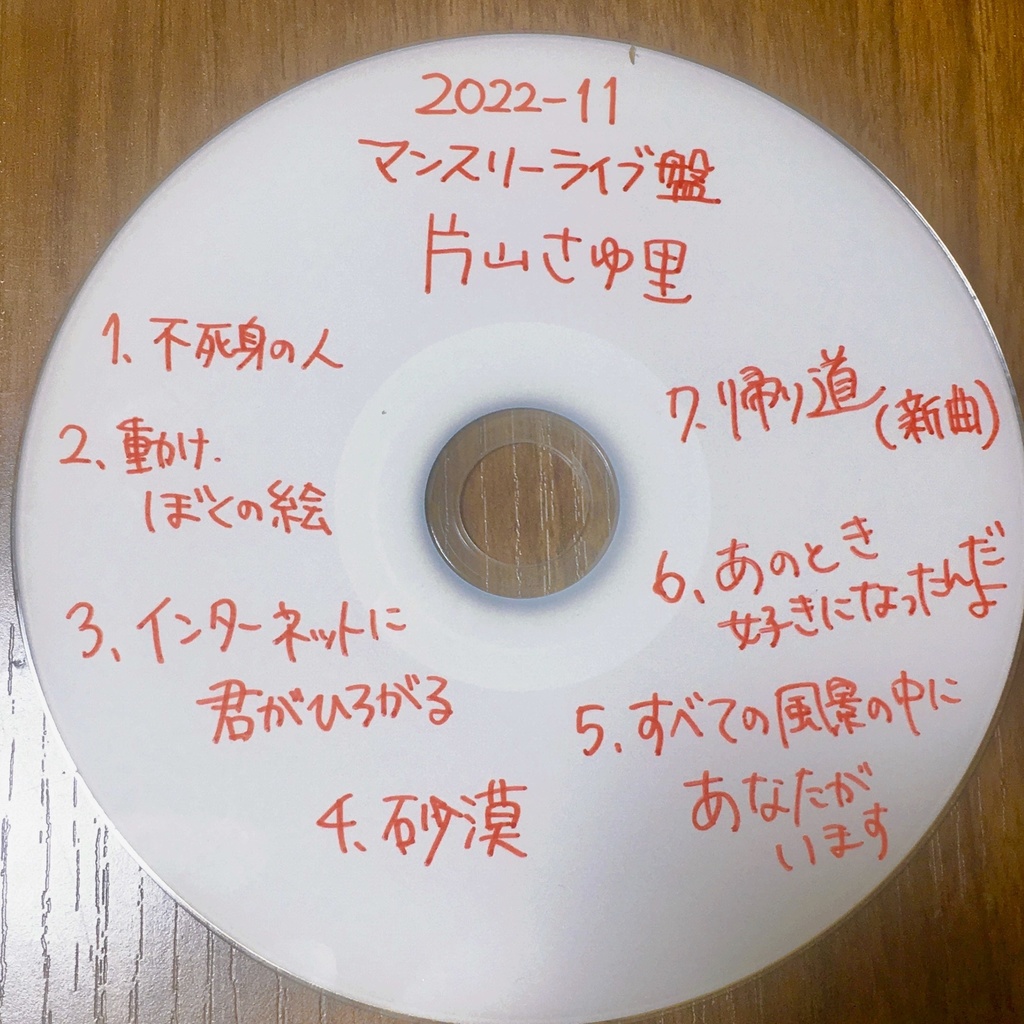 2022-11
マンスリーライブ盤
片山さゆ里
1. 不死身の人
2. 動かけ.
ぼくの絵
3. インターネットに
君がひろがる
4. 砂漠
5. すべての風景の中に
あなたが
います
6. あのとき
好きになったんだ
よ
7. 帰り道
(新曲)